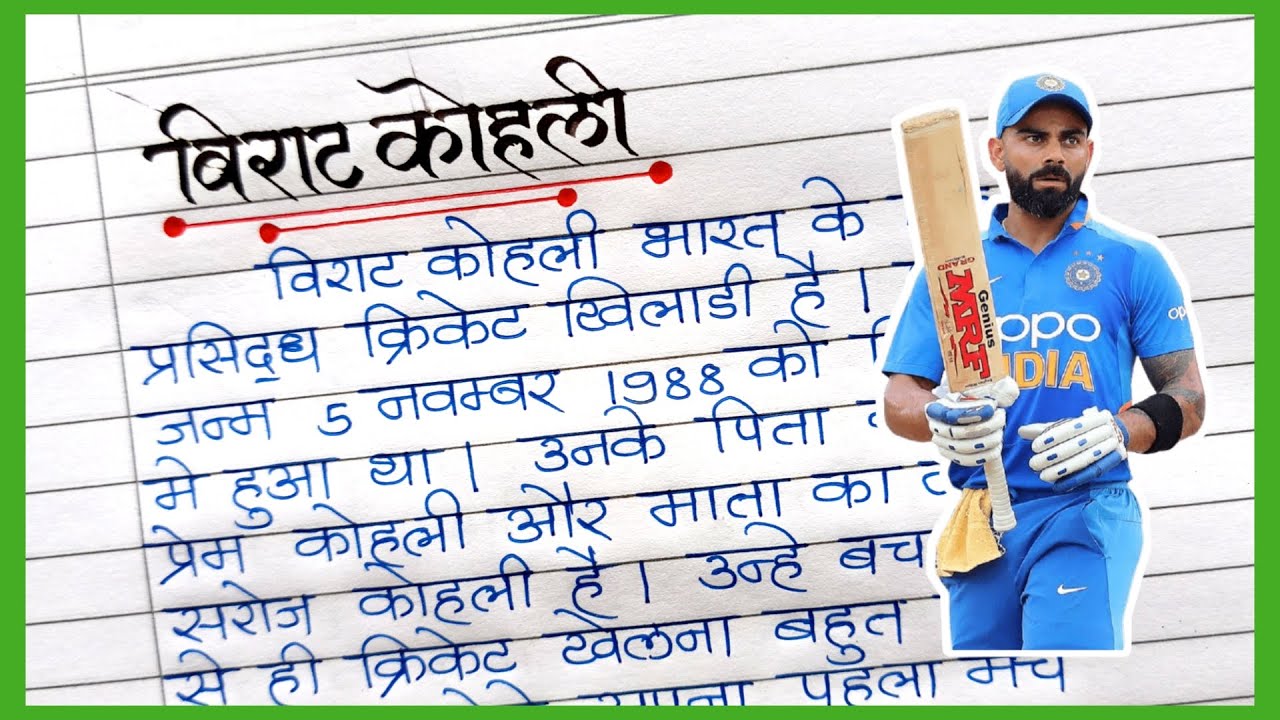 विराट कोहली
विराट कोहली भारत के
प्रसिद्ध क्रिकेट खिलाडी है।
जन्म 5 नवम्बर 1988 को
मे हुआ था। उनके पिता
प्रेम कोहली और माता का
सरोज कोहली है। उन्हे बच
से ही क्रिकेट खेलना बहुत
अपना पहला मैच
Genius
MRF
GRAND
oppo
INDIA